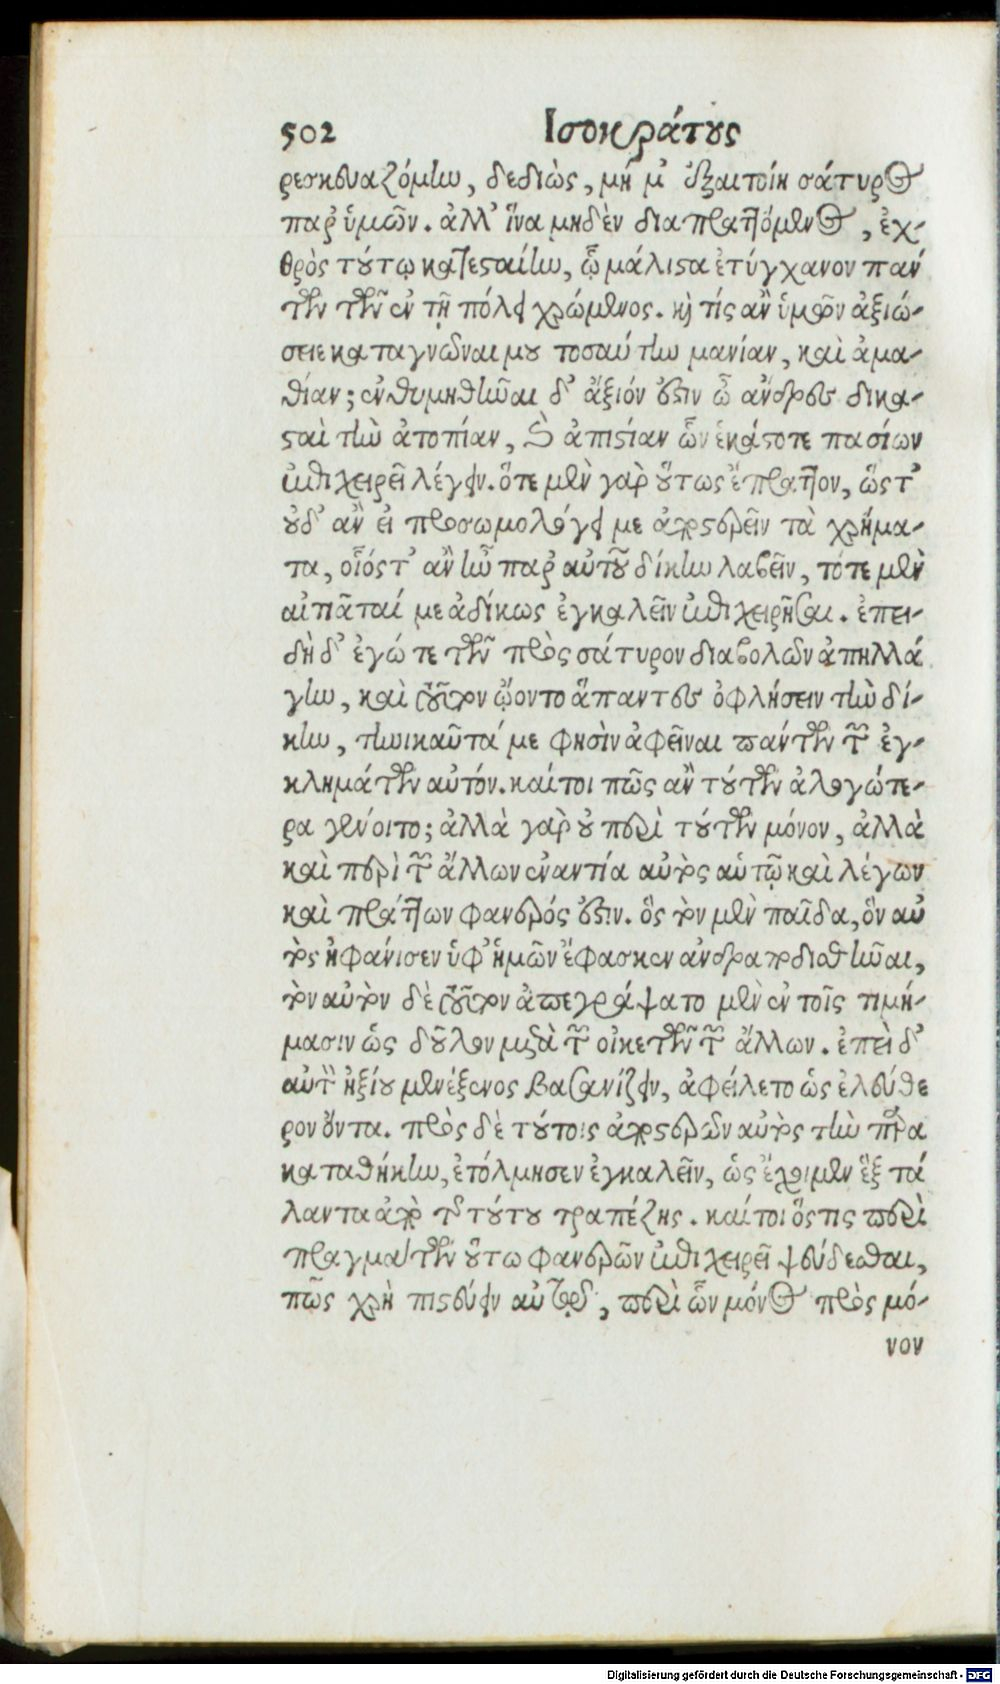 502 Ισοκράτους
ρεσκευαζόμην, δεδιὼς, μή μ' ἐξαιτοίη σάτυρος
παρ' ὑμῶν. ἀλλ' ἵνα μηδὲν διαπραττόμενος, ἐχ-
θρὸς τούτῳ κατεσταίην, ᾧ μάλιστα ἐτύγχανον πάν
των τῶν ἐν τῇ πόλει χρώμενος. καὶ τίς ἂν ὑμῶν ἀξιώ-
σειε καταγνῶναι μου τοσαύτην μανίαν, καὶ ἀμα-
θίαν; ἐνθυμηθῆναι δ' ἄξιόν ἐστιν ὦ ἄνδρες δικα-
σταὶ τὴν ἀτοπίαν, καὶ ἀπιστίαν ὧν ἑκάστοτε πασίων
ἐπιχειρεῖ λέγειν. ὅτε μὲν γὰρ οὕτως ἔπραττον, ὥστ'
οὐδ' ἂν εἰ προσωμολόγει με ἀποστερεῖν τὰ χρήμα-
τα, οἷός τ' ἂν ἦν παρ' αὐτοῦ δίκην λαβεῖν, τότε μὲν
αἰτιᾶταί με ἀδίκως ἐγκαλεῖν ἐπιχειρῆσαι. ἐπει-
δὴ δ' ἐγώ τε τῶν πρὸς σάτυρον διαβολῶν ἀπηλλά
γην, καὶ τοῦτον ᾤοντο ἅπαντες ὀφλήσειν τὴν δί-
κην, τηνικαῦτά με φησὶν ἀφεῖναι πάντων τῶν ἐγ-
κλημάτων αὐτόν. καίτοι πῶς ἂν τούτων ἀλογώτε-
ρα γένοιτο; ἀλλὰ γὰρ οὐ περὶ τούτων μόνον, ἀλλὰ
καὶ περὶ τῶν ἄλλων ἐναντία αὐτὸς αὑτῷ καὶ λέγων
καὶ πράττων φανερός ἐστιν. ὃς τὸν μὲν παῖδα, ὃν αὐ
τὸς ἠφάνισεν ὑφ' ἡμῶν ἔφασκεν ἀνδραποδισθῆναι,
τὸν αὐτὸν δὲ τοῦτον ἀπεγράψατο μὲν ἐν τοῖς τιμή-
μασιν ὡς δοῦλον μετὰ τῶν οἰκετῶν τῶν ἄλλων. ἐπεὶ δ'
αὐτὸν ἠξίου μενέξενος βασανίζειν, ἀφείλετο ὡς ἐλεύθε
ρον ὄντα. πρὸς δὲ τούτοις ἀποστερῶν αὐτὸς τὴν παρα
καταθήκην, ἐτόλμησεν ἐγκαλεῖν, ὡς ἔχοιμεν ἓξ τά
λαντα ἀπὸ τῆς τούτου τραπέζης. καίτοι ὅστις περὶ
πραγμάτων οὕτω φανερῶν ἐπιχειρεῖ ψεύδεσθαι,
πῶς χρὴ πιστεύειν αὐτῷ, περὶ ὧν μόνος πρὸς μό-
νον
Digitalisierung gefördert durch die Deutsche Forschungsgemeinschaft - DFG